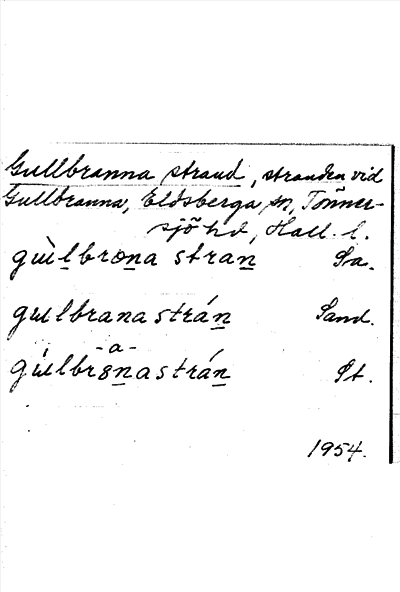 Gullbranna strand, stranden vid
Gullbranna, Eldsberga sn, Tönner-
sjö hd, Hall. l.
gùl̲brɷn̲a stran̲ Sa.
gɯlbrana strán̲ Sand.
-a-
gɯ̀lbr8n̲astrán̲ St.
1954.